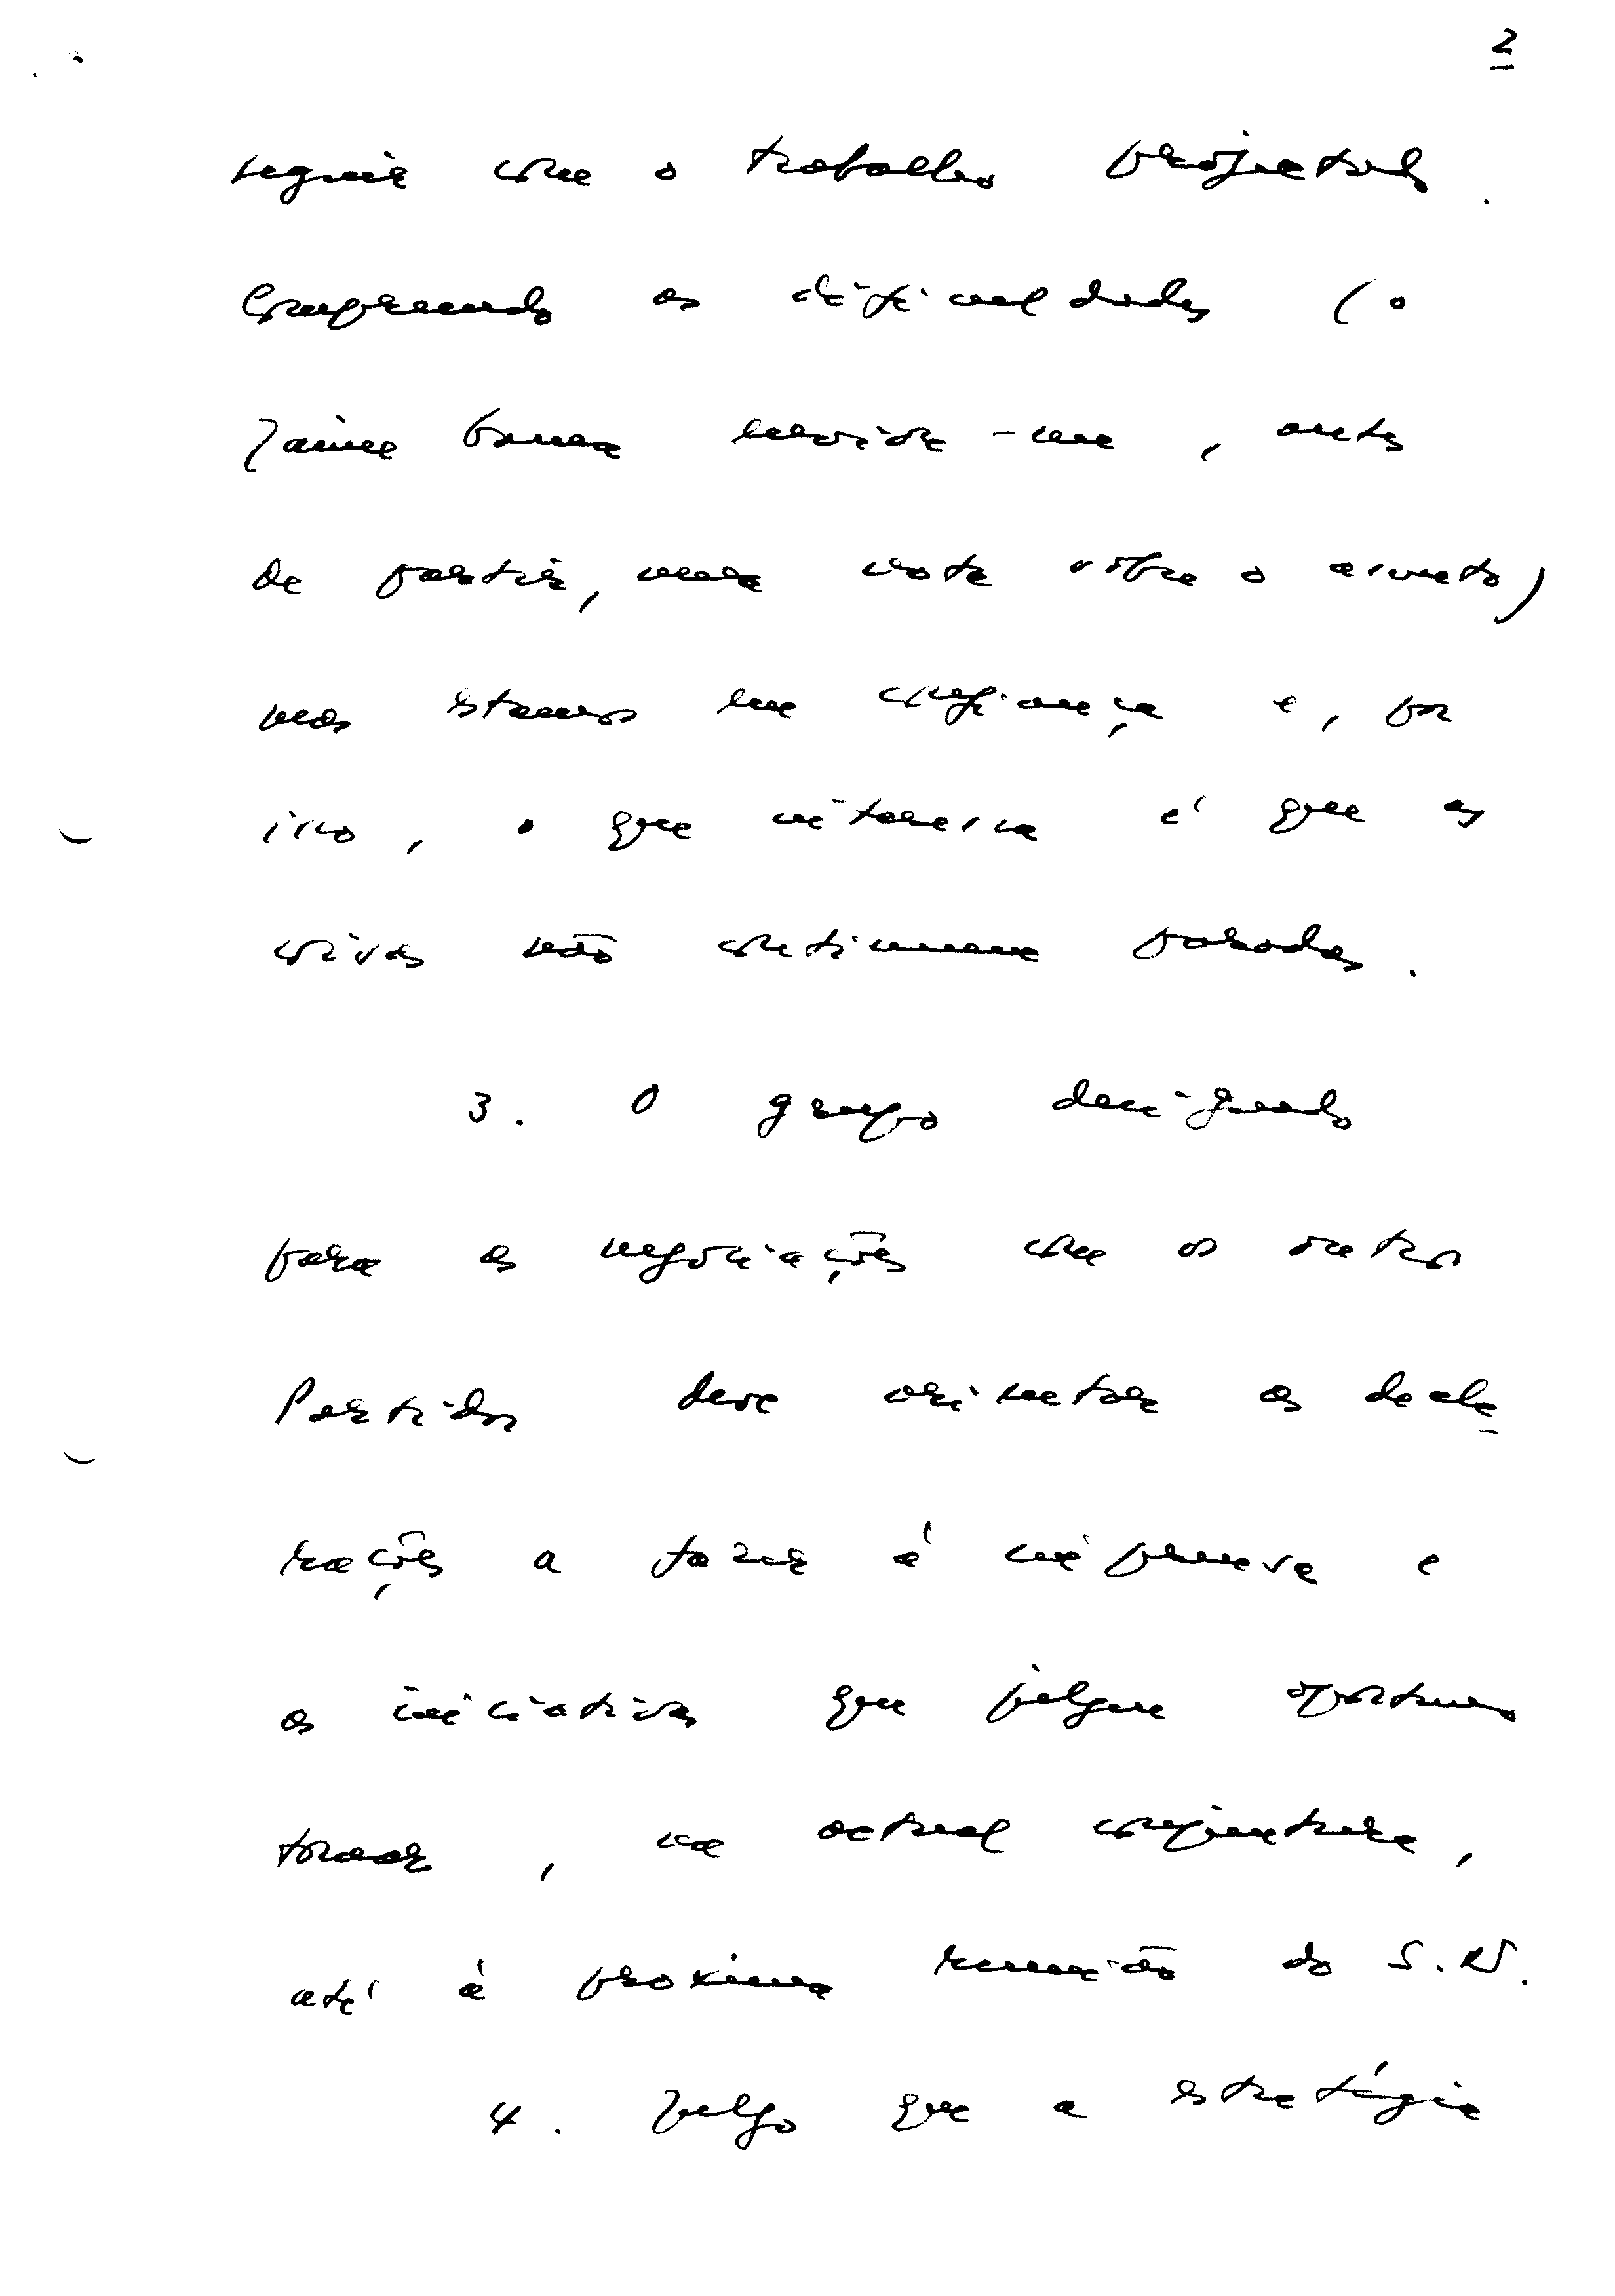 2
seguir com o trabalho projectado.
Compreendo as dificuldades (o
Jaime Gama enviou-me, antes
de partir, uma nota sôbre o assunto)
mas estamos em confiança e, por
isso, o que interessa é que as
coisas não continuem paradas.
3. O grupo designado
para as negociações com os outros
Partidos deve orientar as decla_
rações a fazer à imprensa e
as iniciativas que julgue oportuno
tomar, na actual conjuntura,
até à proxima reunião do S.N.
4. Julgo que a estratégia